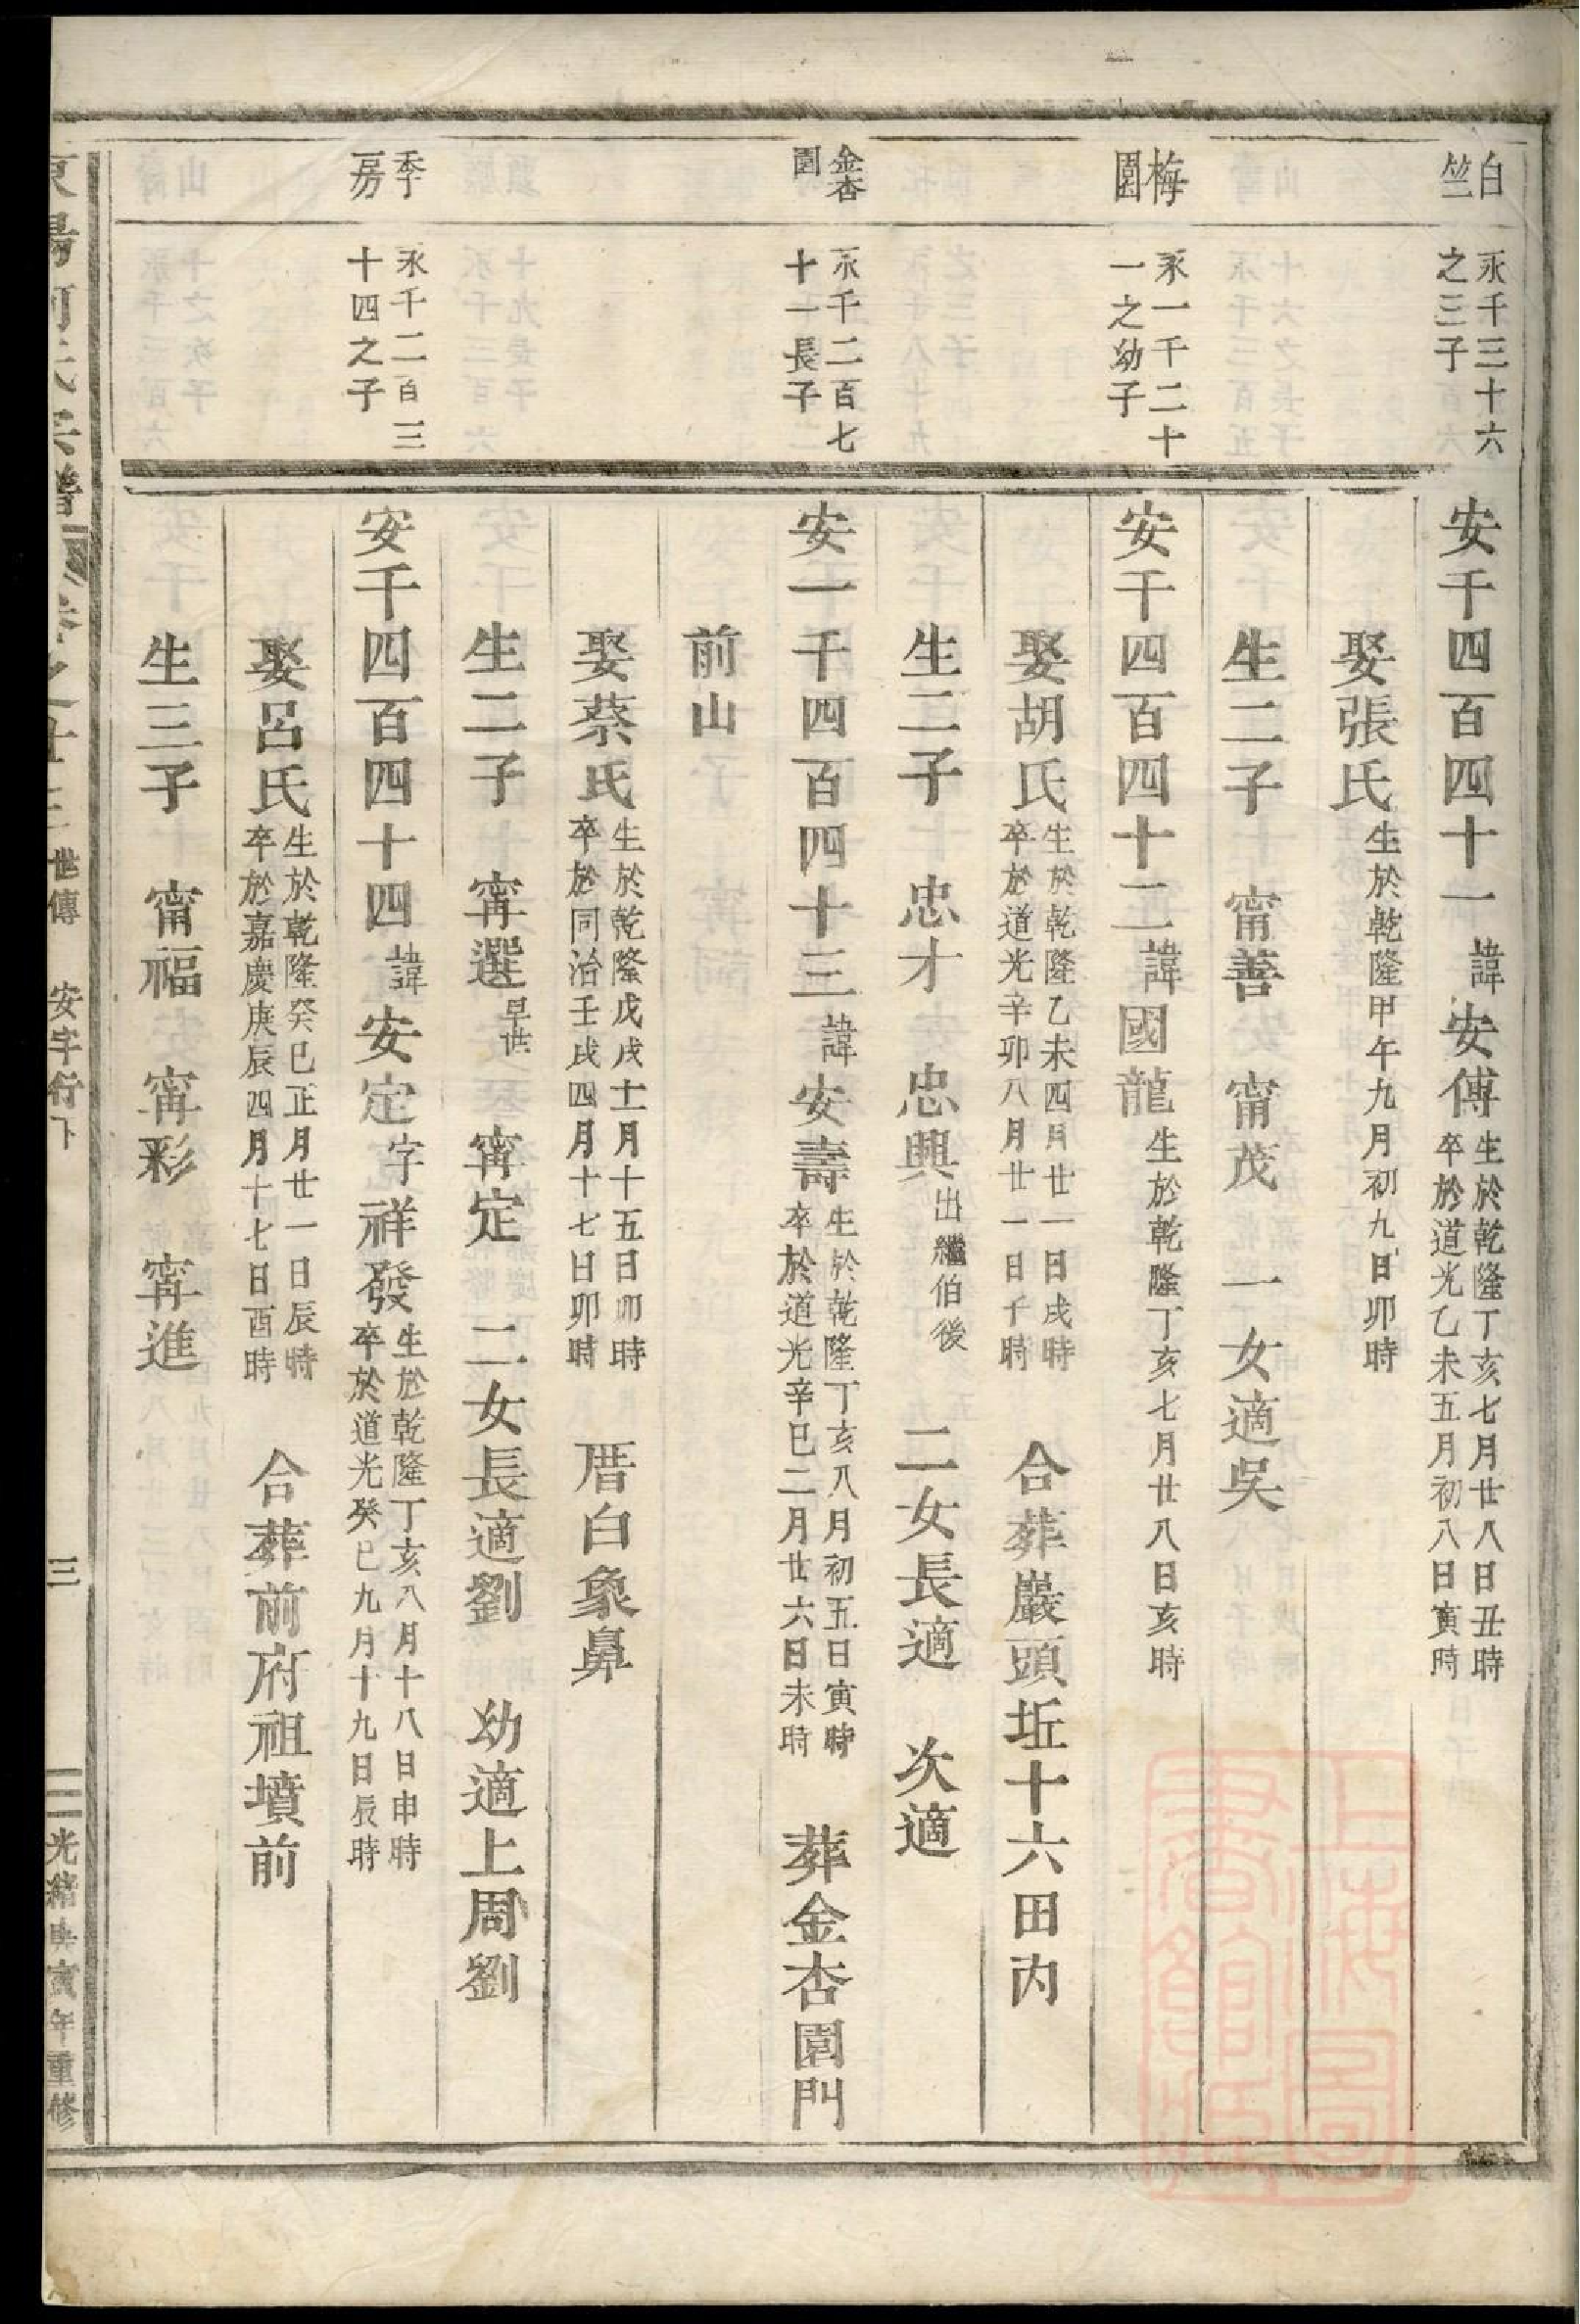 白竺
永千三十六之三子
安千四百四十一 諱安傅 生於乾隆丁亥七月廿八日丑時 卒於道光乙未五月初八日寅時
娶張氏 生於乾隆甲午九月初九日卯時
生二子 甯善 甯茂 一女適吳
梅園
永一千二十一之幼子
安千四百四十二 諱國龍 生於乾隆丁亥七月廿八日亥時
娶胡氏 生於乾隆乙未四月廿一日戌時 卒於道光辛卯八月廿一日子時 合葬巖頭坵十六田內
生二子 忠才 忠興 出繼伯後 二女長適 次適
金杏園
永千二百七十一長子
安一千四百四十三 諱安壽 生於乾隆丁亥八月初五日寅時 卒於道光辛巳二月廿六日未時 葬金杏園門
前山
娶蔡氏 生於乾隆戊戌十二月十五日卯時 卒於同治壬戌四月十七日卯時 厝白象鼻
生二子 甯選 早世 甯定 二女長適劉 幼適上周劉
季房
永千二百三十四之子
安千四百四十四 諱安定 字祥發 生於乾隆丁亥八月十八日申時 卒於道光癸巳九月十九日辰時
娶呂氏 生於乾隆癸巳正月廿一日辰時 卒於嘉慶庚辰四月十七日酉時 合葬前府祖墳前
生三子 甯福 甯彩 甯進
東陽何氏宗譜 卷之廿三 世傳 安字行下 三 光緒庚寅年重修
上海圖書館藏